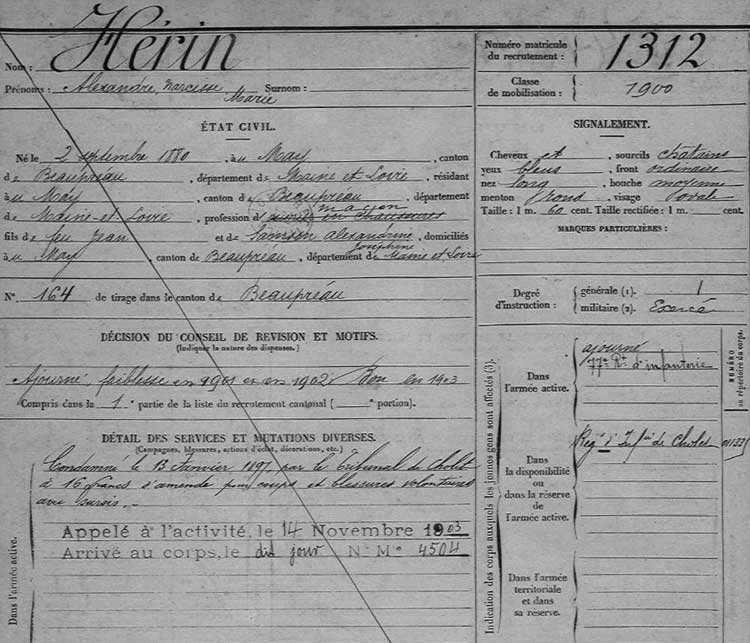 Hérin
Nom :
Prénoms : Alexandre, Narcisse Surnom :
Marie
ÉTAT CIVIL.
Né le 2 septembre 1880, à u May, canton
de Beaupreau, département de Maine et Loire, résidant
à u May, canton de Beaupréau, département
de Maine-et-Loire, profession d maçon
en chaussures
fils de feu Jean et de Samson Alexandrine, domiciliés
Joséphine
à u May, canton de Beaupréau, département de Maine et Loire
N° 164 de tirage dans le canton de Beaupréau
DÉCISION DU CONSEIL DE REVISION ET MOTIFS.
(Indiquer la nature des dispenses.)
Ajourné, faiblesse en 1901 et en 1902. Bon en 1903
Compris dans la 1e partie de la liste du recrutement cantonal ( e portion).
DÉTAIL DES SERVICES ET MUTATIONS DIVERSES.
(Campagnes, blessures, actions d'éclat, décorations, etc.)
Condamné le 13 Janvier 1897 par le Tribunal de Cholet
à 16 francs d'amende pour coups et blessures volontaires
avec sursis.
Appelé à l'activité, le 14 Novembre 1903
Arrivé au corps, le dit jour N° Me 4504
Dans l'armée active.
Numéro matricule
du recrutement : 1312
Classe
de mobilisation : 1900
SIGNALEMENT.
Cheveux et, sourcils chatains
yeux bleus, front ordinaire
nez long, bouche moyenne
menton rond, visage ovale
Taille : 1 m. 60 cent. Taille rectifiée : 1 m. cent.
MARQUES PARTICULIÈRES :
Degré
d'instruction : générale (1). 1
militaire (2). Exercé
Indication des corps auxquels les jeunes gens sont affectés (3).
Dans
l'armée active.
ajourné
77e Rt d'infanterie
NUMÉRO
au répertoire du corps.
Dans
la disponibilité
ou
dans la réserve
de
l'armée active.
Regt d'Infie de Cholet
Dans l'armée
territoriale
et dans
sa réserve.